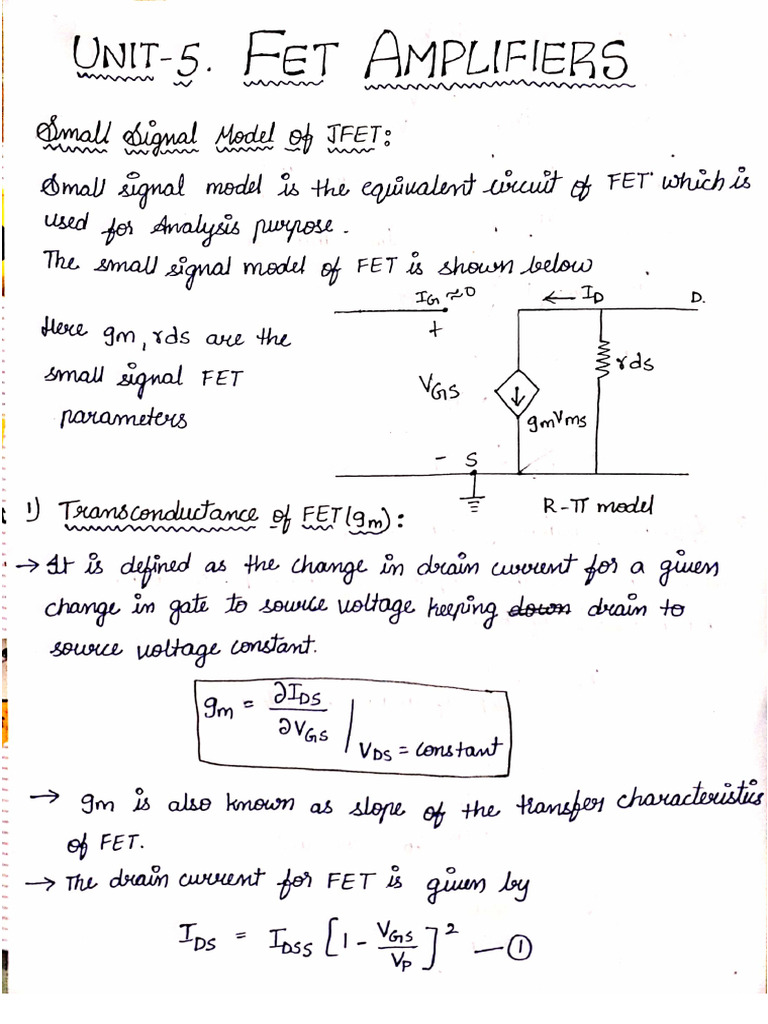 UNIT-5. FET AMPLIFIERS
Small Signal Model of JFET:
Small signal model is the equivalent circuit of FET which is
used for Analysis purpose.
The small signal model of FET is shown below
IG ≈ 0
← ID
D.
Here gm, rds are the
small signal FET
parameters
+
VGS
-
S
gmVms
rds
R-π model
1) Transconductance of FET (gm):
→ It is defined as the change in drain current for a given
change in gate to source voltage keeping down drain to
source voltage constant.
gm = ∂IDS / ∂VGS | VDS = constant
→ gm is also known as slope of the transfer characteristics
of FET.
→ The drain current for FET is given by
IDS = IDSS [1 - VGS/VP]² — ①